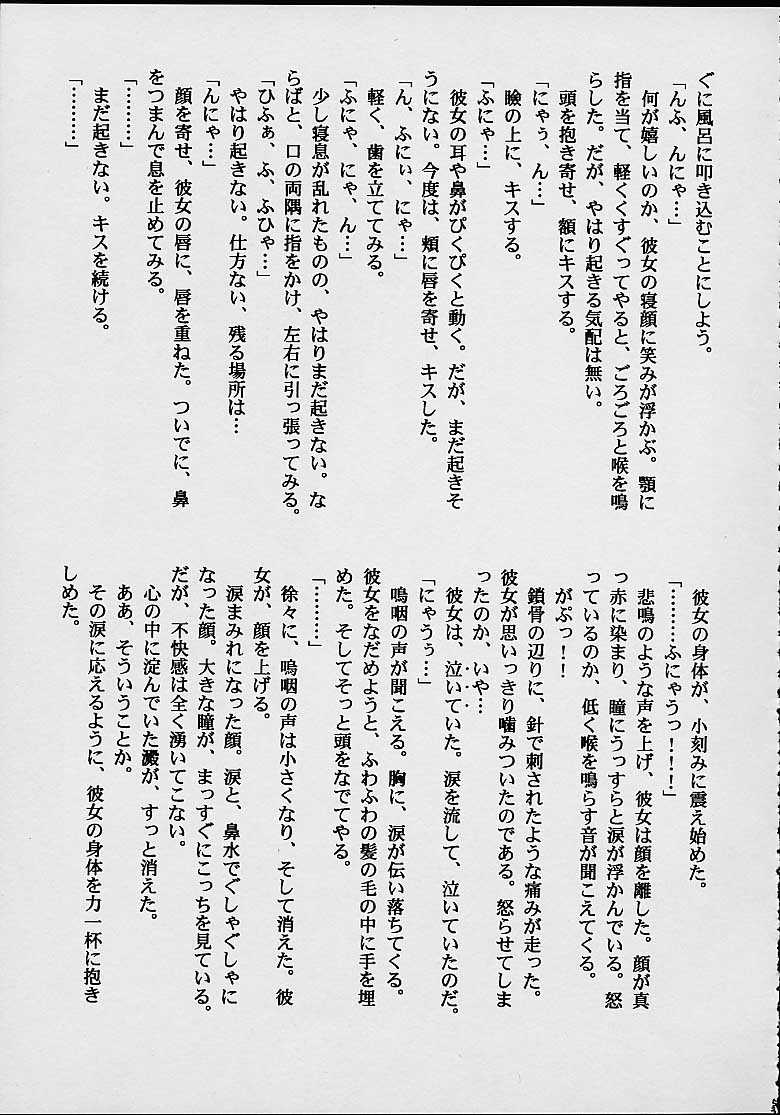 ぐに風呂に叩き込むことにしよう。
「んふ、んにゃ…」
何が嬉しいのか、彼女の寝顔に笑みが浮かぶ。顎に
指を当て、軽くくすぐってやると、ごろごろと喉を鳴
らした。だが、やはり起きる気配は無い。
頭を抱き寄せ、額にキスする。
「にゃぅ、ん…」
瞼の上に、キスする。
「ふにゃ…」
彼女の耳や鼻がぴくぴくと動く。だが、まだ起きそ
うにない。今度は、頬に唇を寄せ、キスした。
「ん、ふにぃ、にゃ…」
軽く、歯を立ててみる。
「ふにゃ、にゃ、ん…」
少し寝息が乱れたものの、やはりまだ起きない。な
らばと、口の両隅に指をかけ、左右に引っ張ってみる。
「ひふぁ、ふ、ふひゃ…」
やはり起きない。仕方ない、残る場所は…
「んにゃ…」
顔を寄せ、彼女の唇に、唇を重ねた。ついでに、鼻
をつまんで息を止めてみる。
「………」
まだ起きない。キスを続ける。
「………」
彼女の身体が、小刻みに震え始めた。
「………ふにゃうっ！！！」
悲鳴のような声を上げ、彼女は顔を離した。顔が真
っ赤に染まり、瞳にうっすらと涙が浮かんでいる。怒
っているのか、低く喉を鳴らす音が聞こえてくる。
がぷっ！！
鎖骨の辺りに、針で刺されたような痛みが走った。
彼女が思いっきり噛みついたのである。怒らせてしま
ったのか、いや…
彼女は、泣いていた。涙を流して、泣いていたのだ。
「にゃうぅ…」
嗚咽の声が聞こえる。胸に、涙が伝い落ちてくる。
彼女をなだめようと、ふわふわの髪の毛の中に手を埋
めた。そしてそっと頭をなでてやる。
「………」
徐々に、嗚咽の声は小さくなり、そして消えた。彼
女が、顔を上げる。
涙まみれになった顔。涙と、鼻水でぐしゃぐしゃに
なった顔。大きな瞳が、まっすぐにこっちを見ている。
だが、不快感は全く湧いてこない。
心の中に淀んでいた澱が、すっと消えた。
ああ、そういうことか。
その涙に応えるように、彼女の身体を力一杯に抱き
しめた。